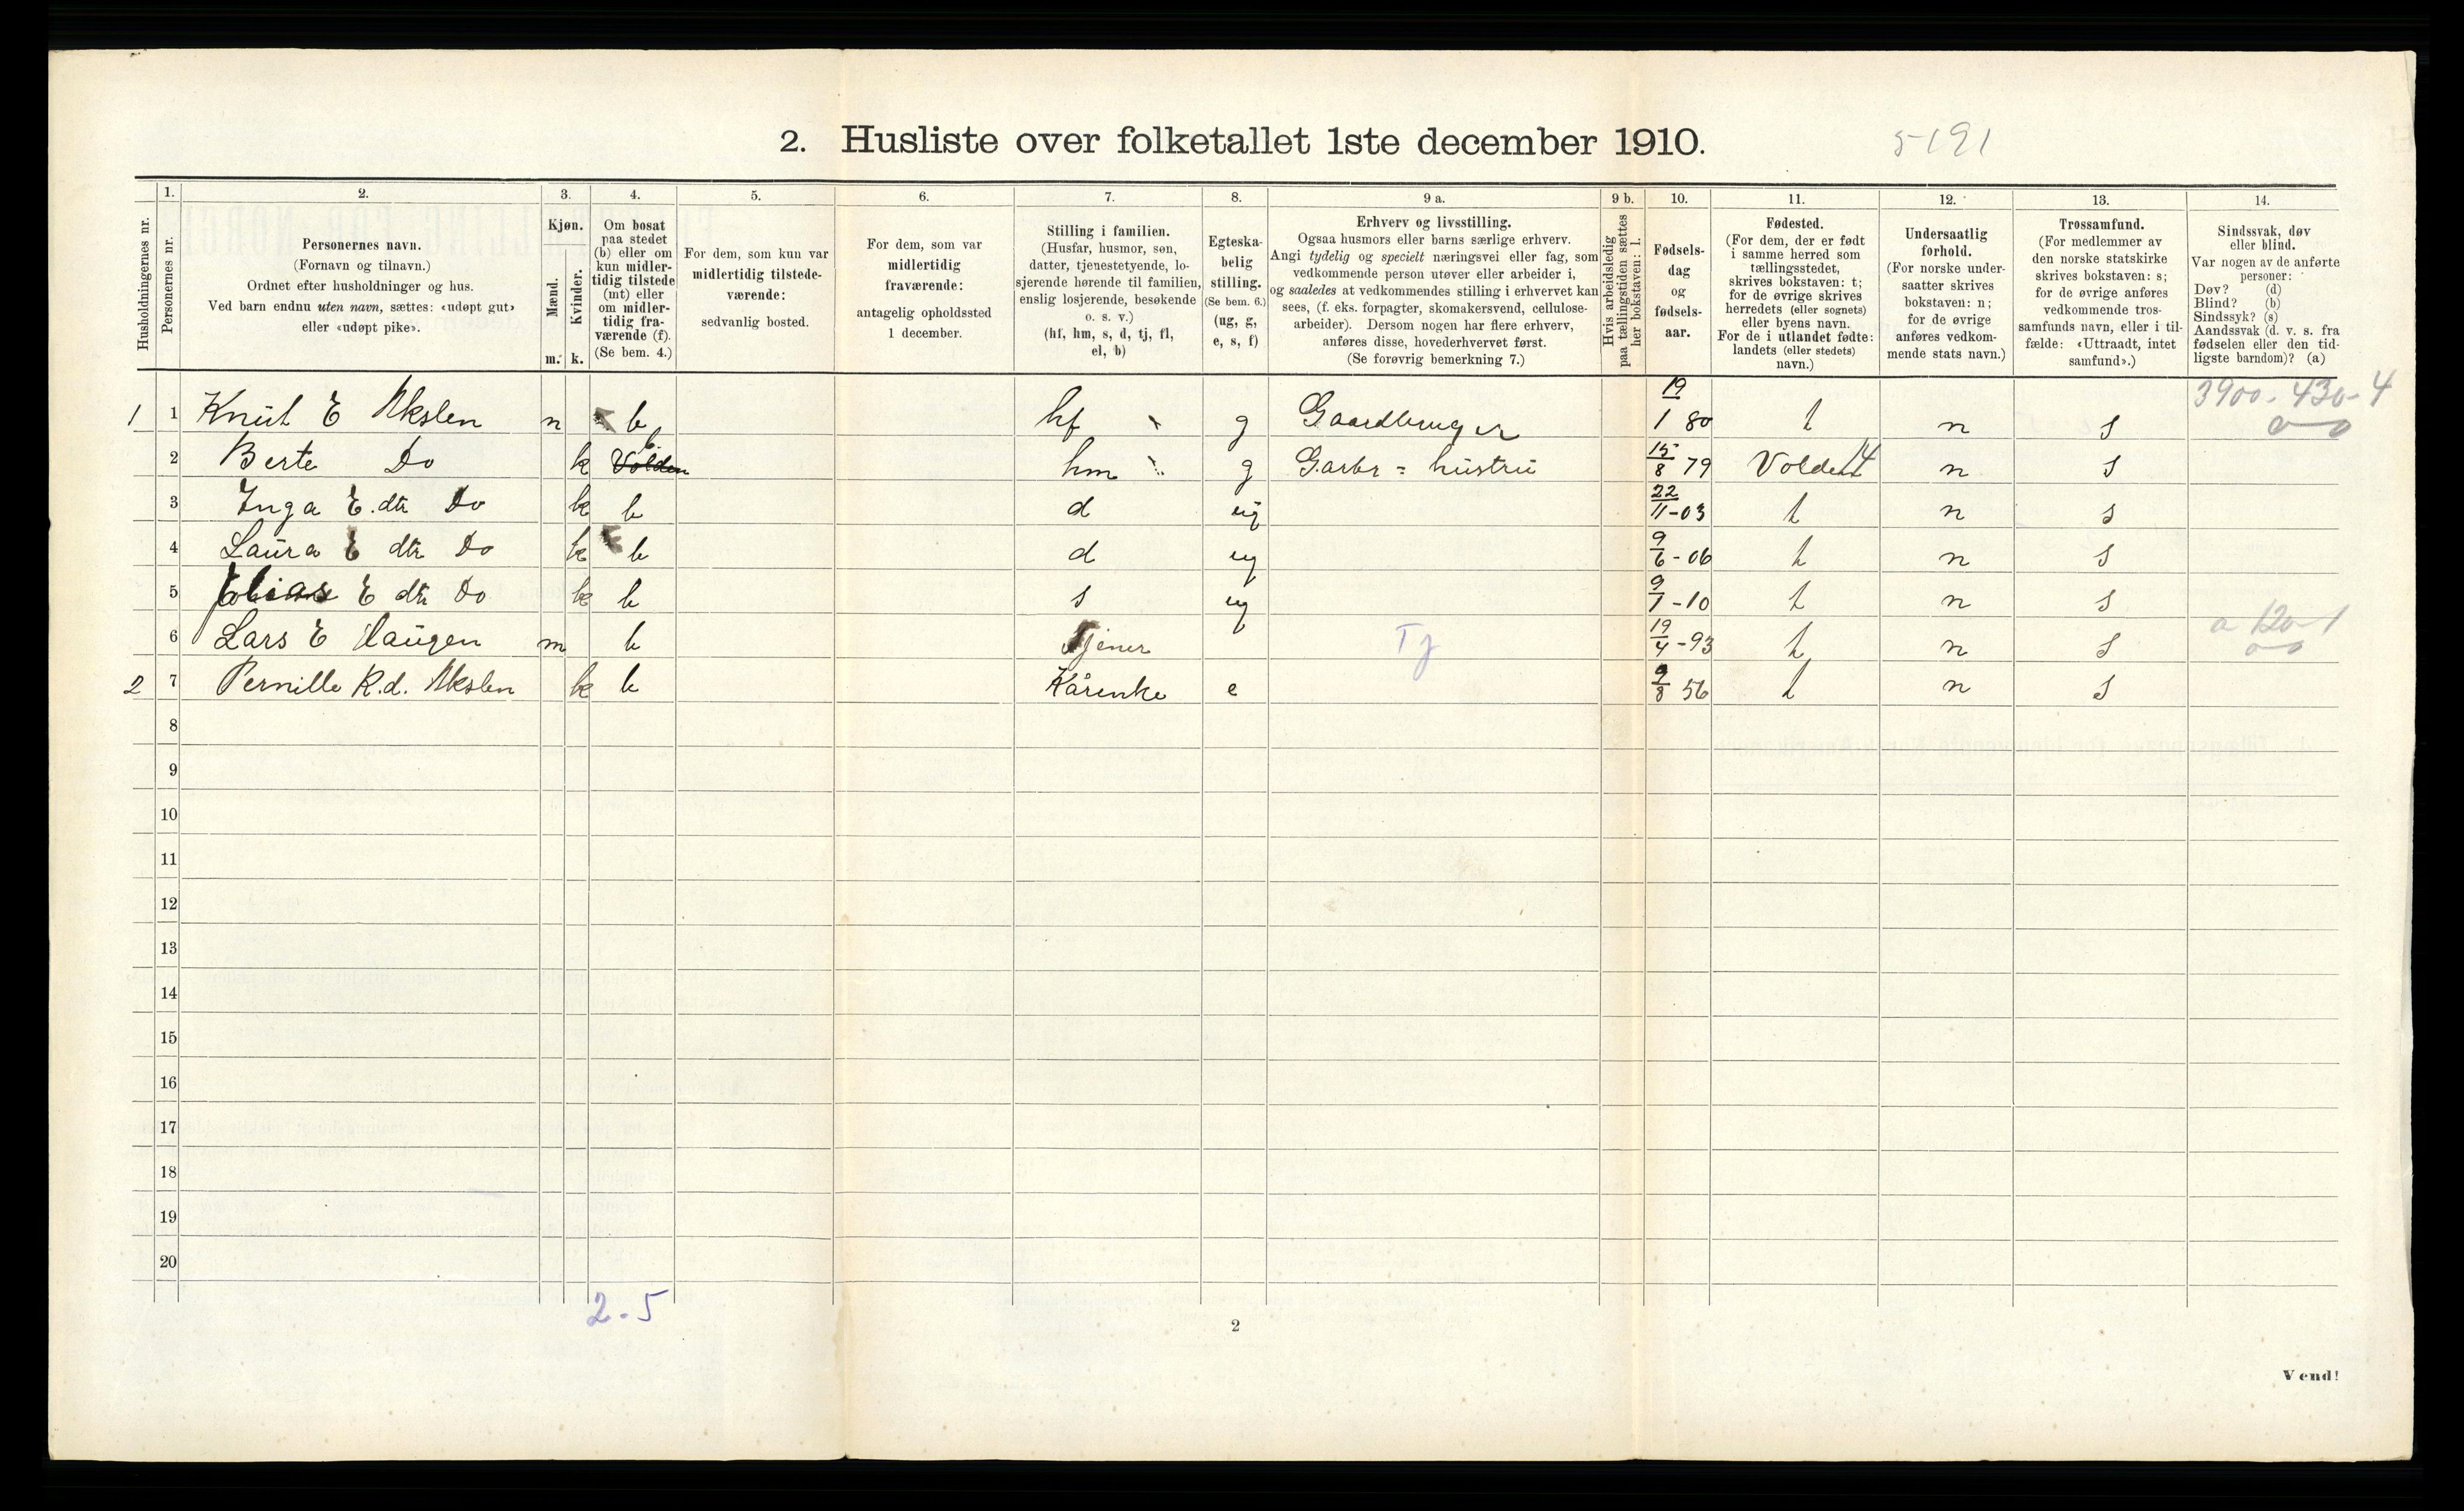 2. Husliste over folketallet 1ste december 1910. 5191
Husholdningernes nr.
1. Personernes nr.
2. Personernes navn.
(Fornavn og tilnavn.)
Ordnet efter husholdninger og hus.
Ved barn endnu uten navn, sættes: «udøpt gut»
eller «udøpt pike».
3. Kjøn.
Mænd. m.
Kvinder. k.
4. Om bosat
paa stedet
(b) eller om
kun midler-
tidig tilstede
(mt) eller
om midler-
tidig fra-
værende (f).
(Se bem. 4.)
5. For dem, som kun var
midlertidig tilstede-
værende:
sedvanlig bosted.
6. For dem, som var
midlertidig
fraværende:
antagelig opholdssted
1 december.
7. Stilling i familien.
(Husfar, husmor, søn,
datter, tjenestetyende, lo-
sjerende hørende til familien,
enslig losjerende, besøkende
o. s. v.)
(hf, hm, s, d, tj, fl,
el, b)
8. Egteska-
belig
stilling.
(Se bem. 6.)
(ug, g,
e, s, f)
9 a. Erhverv og livsstilling.
Ogsaa husmors eller barns særlige erhverv.
Angi tydelig og specielt næringsvei eller fag, som
vedkommende person utøver eller arbeider i,
og saaledes at vedkommendes stilling i erhvervet kan
sees, (f. eks. forpagter, skomakersvend, cellulose-
arbeider). Dersom nogen har flere erhverv,
anføres disse, hovederhvervet først.
(Se forøvrig bemerkning 7.)
9 b. Hvis arbeidsledig
paa tællingstiden sættes
her bokstaven: l.
10. Fødsels-
dag
og
fødsels-
aar.
11. Fødested.
(For dem, der er født
i samme herred som
tællingsstedet,
skrives bokstaven: t;
for de øvrige skrives
herredets (eller sognets)
eller byens navn.
For de i utlandet fødte:
landets (eller stedets)
navn.)
12. Undersaatlig
forhold.
(For norske under-
saatter skrives
bokstaven: n;
for de øvrige
anføres vedkom-
mende stats navn.)
13. Trossamfund.
(For medlemmer av
den norske statskirke
skrives bokstaven: s;
for de øvrige anføres
vedkommende tros-
samfunds navn, eller i til-
fælde: «Uttraadt, intet
samfund».)
14. Sindssvak, døv
eller blind.
Var nogen av de anførte
personer:
Døv? (d)
Blind? (b)
Sindssyk? (s)
Aandssvak (d. v. s. fra
fødselen eller den tid-
ligste barndom)? (a)
3900-430-4
1 1 Knut E Akslen m b hf g Gaardbruger 19/1 80 t n s
2 Berte Do k Volden b hm g Garbr = hustru 15/8 79 Volden 14 n s
3 Inga E.dtr Do k b d ug 22/11-03 t n s
4 Laura E dtr Do k b d ug 9/6-06 t n s
5 E dtr Do k b s ug 9/1-10 t n s
6 Lars E Haugen m b Tjener Tj 19/4-93 t n s a 120-1
2 7 Pernille R.d. Akslen k b Kårenke e 9/8 56 t n s
8
9
10
11
12
13
14
15
16
17
18
19
20
2-5
2
Vend!